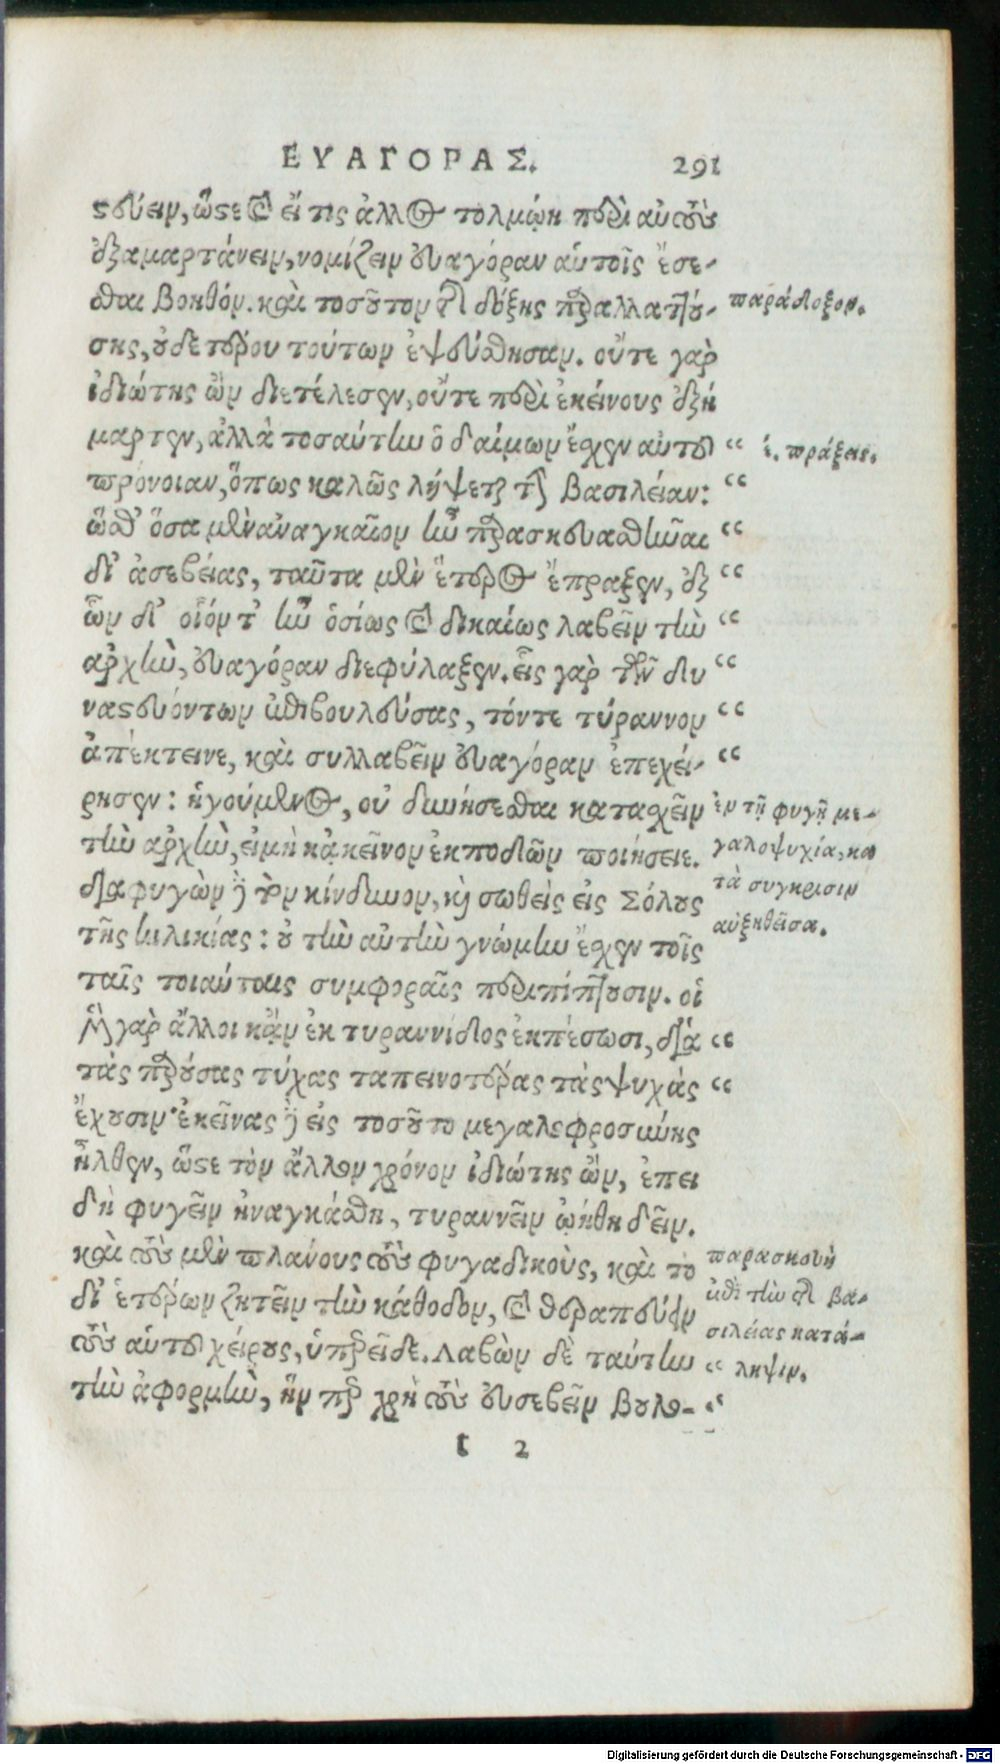 ΕΥΑΓΟΡΑΣ. 291
στεύειν, ὥστε καὶ εἴ τις ἄλλος τολμῴη περὶ αὐτοὺς
ἐξαμαρτάνειν, νομίζειν Εὐαγόραν αὑτοῖς ἔσε-
σθαι βοηθόν. καὶ τοσοῦτον τῆς δόξης παραλλαττού- παράδοξον.
σης, οὐδετέρου τούτων ἐψεύσθησαν. οὔτε γὰρ
ἰδιώτης ὢν διετέλεσεν, οὔτε περὶ ἐκείνους ἐξή
μαρτεν, ἀλλὰ τοσαύτην ὁ δαίμων ἔσχεν αὐτοῦ “ ἑ. πράξεις.
πρόνοιαν, ὅπως καλῶς λήψεται τὴν βασιλείαν: “
ὥσθ' ὅσα μὲν ἀναγκαῖον ἦν παρασκευασθῆναι “
δι' ἀσεβείας, ταῦτα μὲν ἕτερος ἔπραξεν, ἐξ “
ὧν δι' οἷόν τ' ἦν ὁσίως καὶ δικαίως λαβεῖν τὴν “
ἀρχὴν, Εὐαγόραν διεφύλαξεν. εἷς γὰρ τῶν δυ “
ναστευόντων ἐπιβουλεύσας, τόντε τύραννον “
ἀπέκτεινε, καὶ συλλαβεῖν Εὐαγόραν ἐπεχεί- “
ρησεν: ἡγούμενος, οὐ δυνήσεσθαι κατασχεῖν ἐν τῇ φυγῇ με-
τὴν ἀρχὴν, εἰμὴ κἀκεῖνον ἐκποδὼν ποιήσειε. γαλοψυχία, κα
διαφυγὼν δὲ τὸν κίνδυνον, καὶ σωθεὶς εἰς Σόλους τὰ συγκρισιν
τῆς Κιλικίας: οὐ τὴν αὐτὴν γνώμην ἔσχεν τοῖς αὐξηθεῖσα.
ταῖς τοιαύταις συμφοραῖς περιπίπτουσιν. οἱ
μὲν γὰρ ἄλλοι κἂν ἐκ τυραννίδος ἐκπέσωσι, διὰ “
τὰς παρούσας τύχας ταπεινοτέρας τὰς ψυχὰς “
ἔχουσιν· ἐκεῖνας δὲ εἰς τοσοῦτο μεγαλοφροσύνης
ἦλθεν, ὥστε τὸν ἄλλον χρόνον ἰδιώτης ὢν, ἐπει
δὴ φυγεῖν ἠναγκάσθη, τυραννεῖν ᾠήθη δεῖν.
καὶ τοὺς μὲν πλάνους τοὺς φυγαδικοὺς, καὶ τὸ παρασκευὴ
δι' ἑτέρων ζητεῖν τὴν κάθοδον, καὶ θεραπεύειν ἐπὶ τὴν τῆς βα-
τοὺς αὑτοῦ χείρους, ὑπερεῖδε. Λαβὼν δὲ ταύτην “ σιλείας κατά-
τὴν ἀφορμὴν, ἥνπερ χρὴ τοὺς εὐσεβεῖν βουλο- “ ληψιν.
t 2
Digitalisierung gefördert durch die Deutsche Forschungsgemeinschaft - DFG